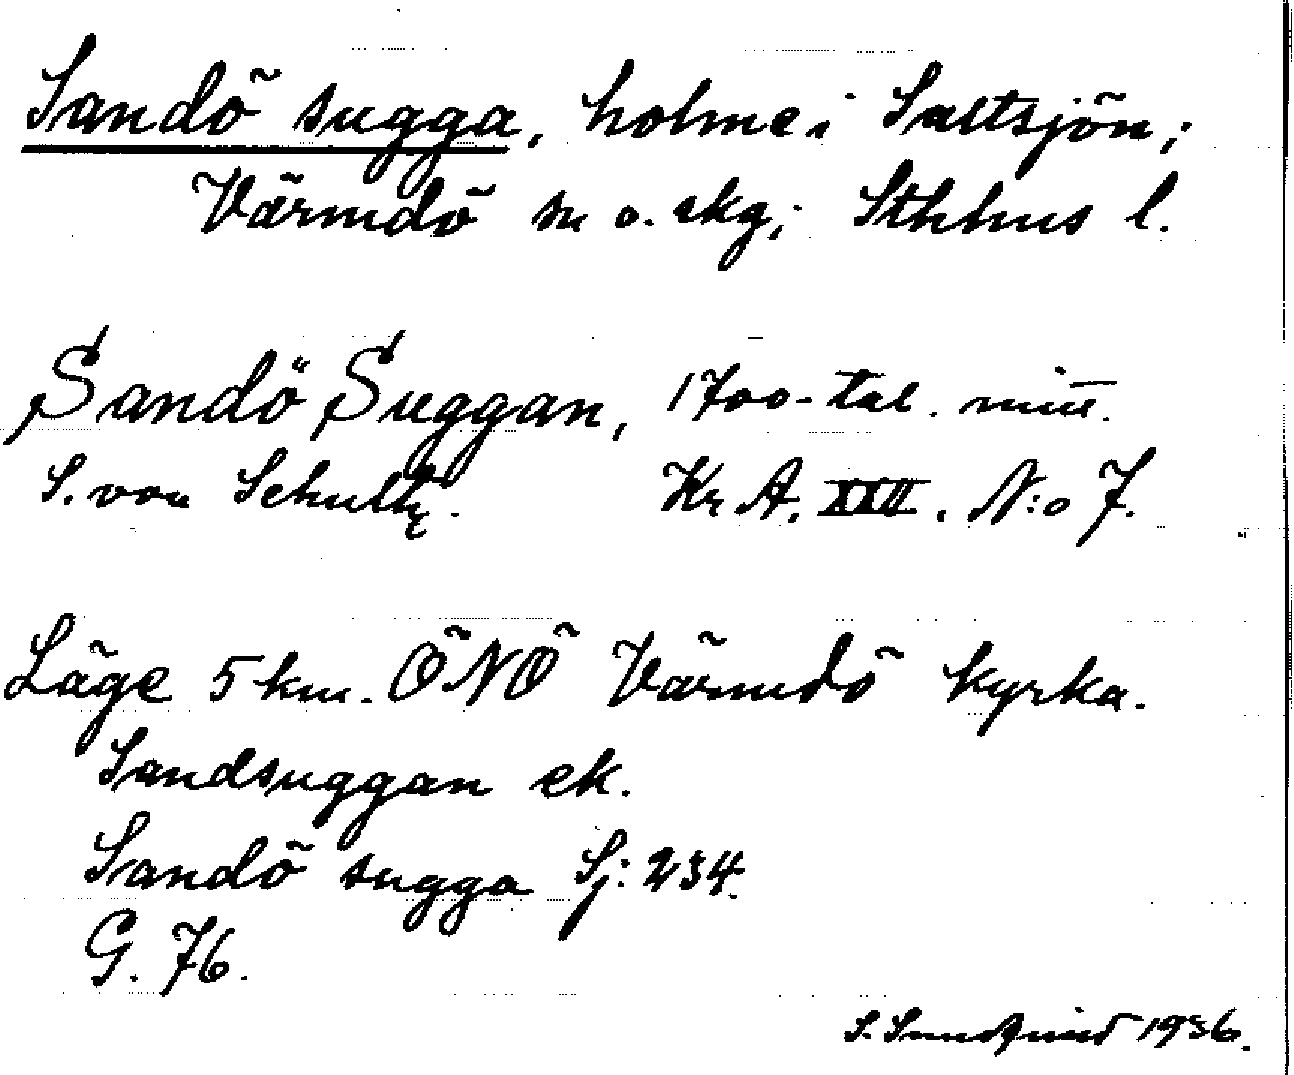 Sandö sugga, holme i Saltsjön;
Värmdö sn o. skg; Sthlms l.
Sandö Suggan, 1700-tal. mitt.
S. von Schultz. Kr A. XXII. N:o 7.
Läge 5 km. ÖNÖ Värmdö kyrka.
Sandsuggan ek.
Sandö sugga Sj: 234.
G. 76.
S. 1936.